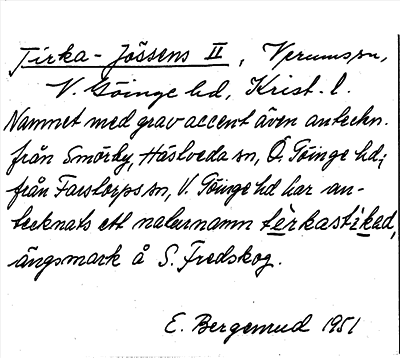 Tirka-Jössens II, Verums sn,
V. Göinge hd, Krist. l.
Namnet med grav accent även anteckn.
från Smörby, Häslveda sn, Ö. Göinge hd;
från Farstorps sn, V. Göinge hd har an-
tecknats ett naturnamn terkastikad,
ängsmark å S. Fredskog.
E. Bergemud 1951